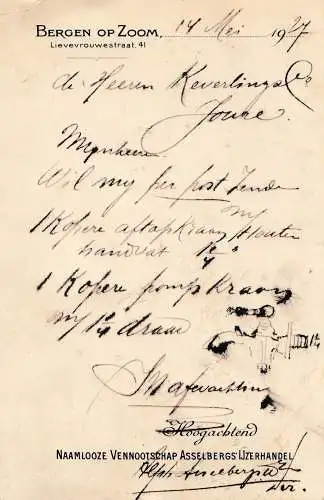 BERGEN OP ZOOM, 14 Mei 1927
Lievevrouwestraat. 41
de Heeren Keverlings & Co
Joure.
Mynheeren
Wil my per post zenden
1 Kopere aftapkraan m/ houten
handvat 1/4"
1 Kopere pompkraan
m/ 1/4 draad
1/4
In afwachting
Hoogachtend
NAAMLOOZE VENNOOTSCHAP ASSELBERGS' IJZERHANDEL
Alph Asselbergs
Dir.